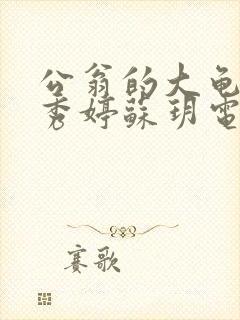 公翁的大龟
秀婷蘇玥電
赛歌